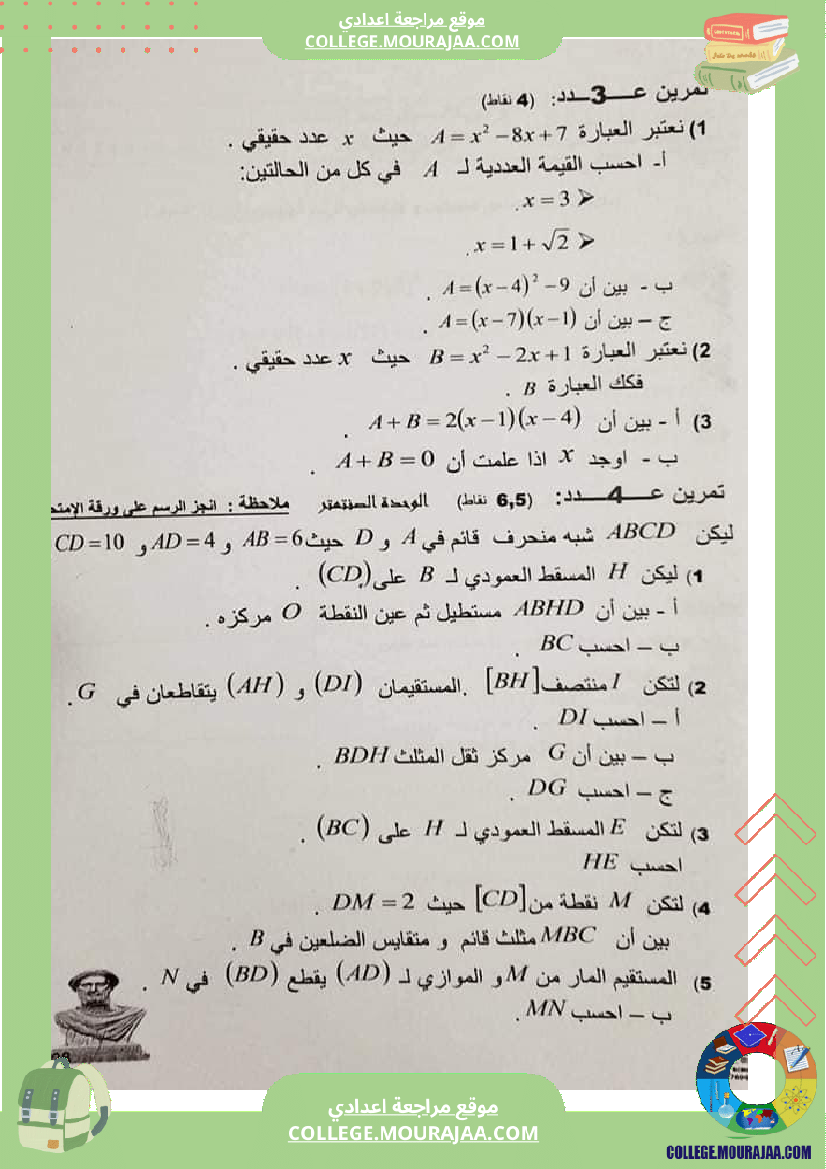 موقع مراجعة اعدادي
COLLEGE.MOURAJAA.COM
تمرين عـــ3ــدد: (4 نقاط)
1) نعتبر العبارة A = x² – 8x + 7 حيث x عدد حقيقي .
أ- احسب القيمة العددية لـ A في كل من الحالتين:
➢ x = 3 .
➢ x = 1 + √2 .
ب - بين أن A = (x – 4)² – 9 .
ج – بين أن A = (x – 7)(x – 1) .
2) نعتبر العبارة B = x² – 2x + 1 حيث x عدد حقيقي .
فكك العبارة B .
3) أ - بين أن A + B = 2(x – 1)(x – 4) .
ب - اوجد x اذا علمت أن A + B = 0 .
تمرين عـــ4ــدد: (6,5 نقاط) الوحدة الصنتمتر ملاحظة : انجز الرسم على ورقة الإمتح
ليكن ABCD شبه منحرف قائم في A و D حيث AB = 6 و AD = 4 و CD = 10
1) ليكن H المسقط العمودي لـ B على (CD) .
أ - بين أن ABHD مستطيل ثم عين النقطة O مركزه .
ب – احسب BC .
2) لتكن I منتصف [BH] .المستقيمان (DI) و (AH) يتقاطعان في G .
أ – احسب DI .
ب – بين أن G مركز ثقل المثلث BDH .
ج – احسب DG .
3) لتكن E المسقط العمودي لـ H على (BC) .
احسب HE
4) لتكن M نقطة من [CD] حيث DM = 2 .
بين أن MBC مثلث قائم و متقايس الضلعين في B .
5) المستقيم المار من M و الموازي لـ (AD) يقطع (BD) في N .
ب – احسب MN .
موقع مراجعة اعدادي
COLLEGE.MOURAJAA.COM
COLLEGE.MOURAJAA.COM